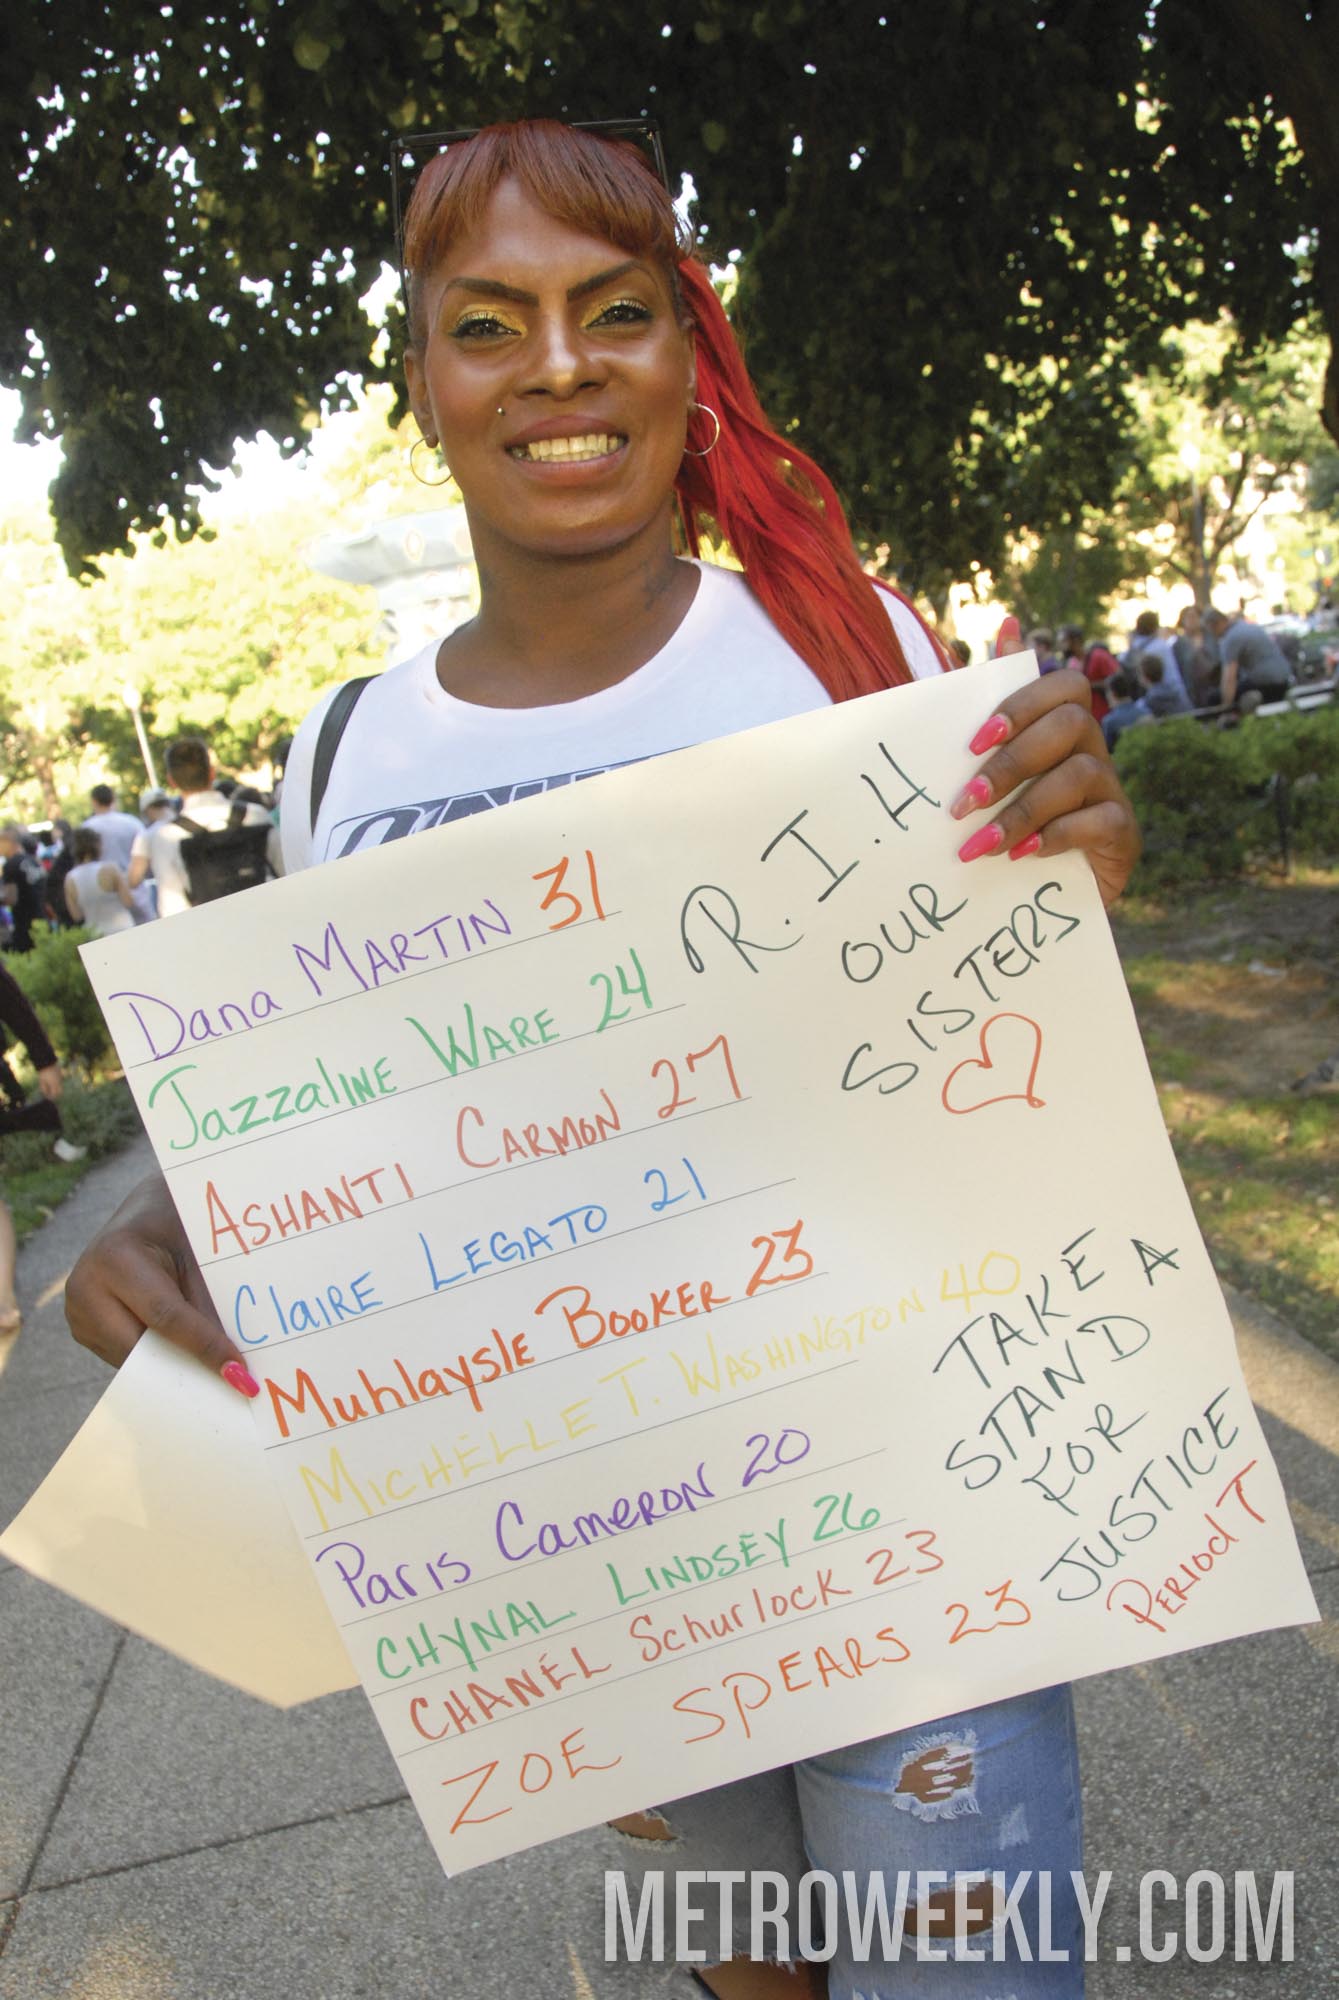 Dana MARTIN 31
JazzalINE WARE 24
ASHANTI CARMON 27
ClaIRE LEGATO 21
Muhlaysle BOOKER 23
MICHELLE T. WASHINGTON 40
Paris CameRON 20
CHYNAL LINDSEY 26
CHANEL Schurlock 23
ZOE SPEARS 23
R.I.H
OUR
SISTERS
TAKE
STAND A
FOR
JUSTICE
PERIOdT
METROWEEKLY.COM